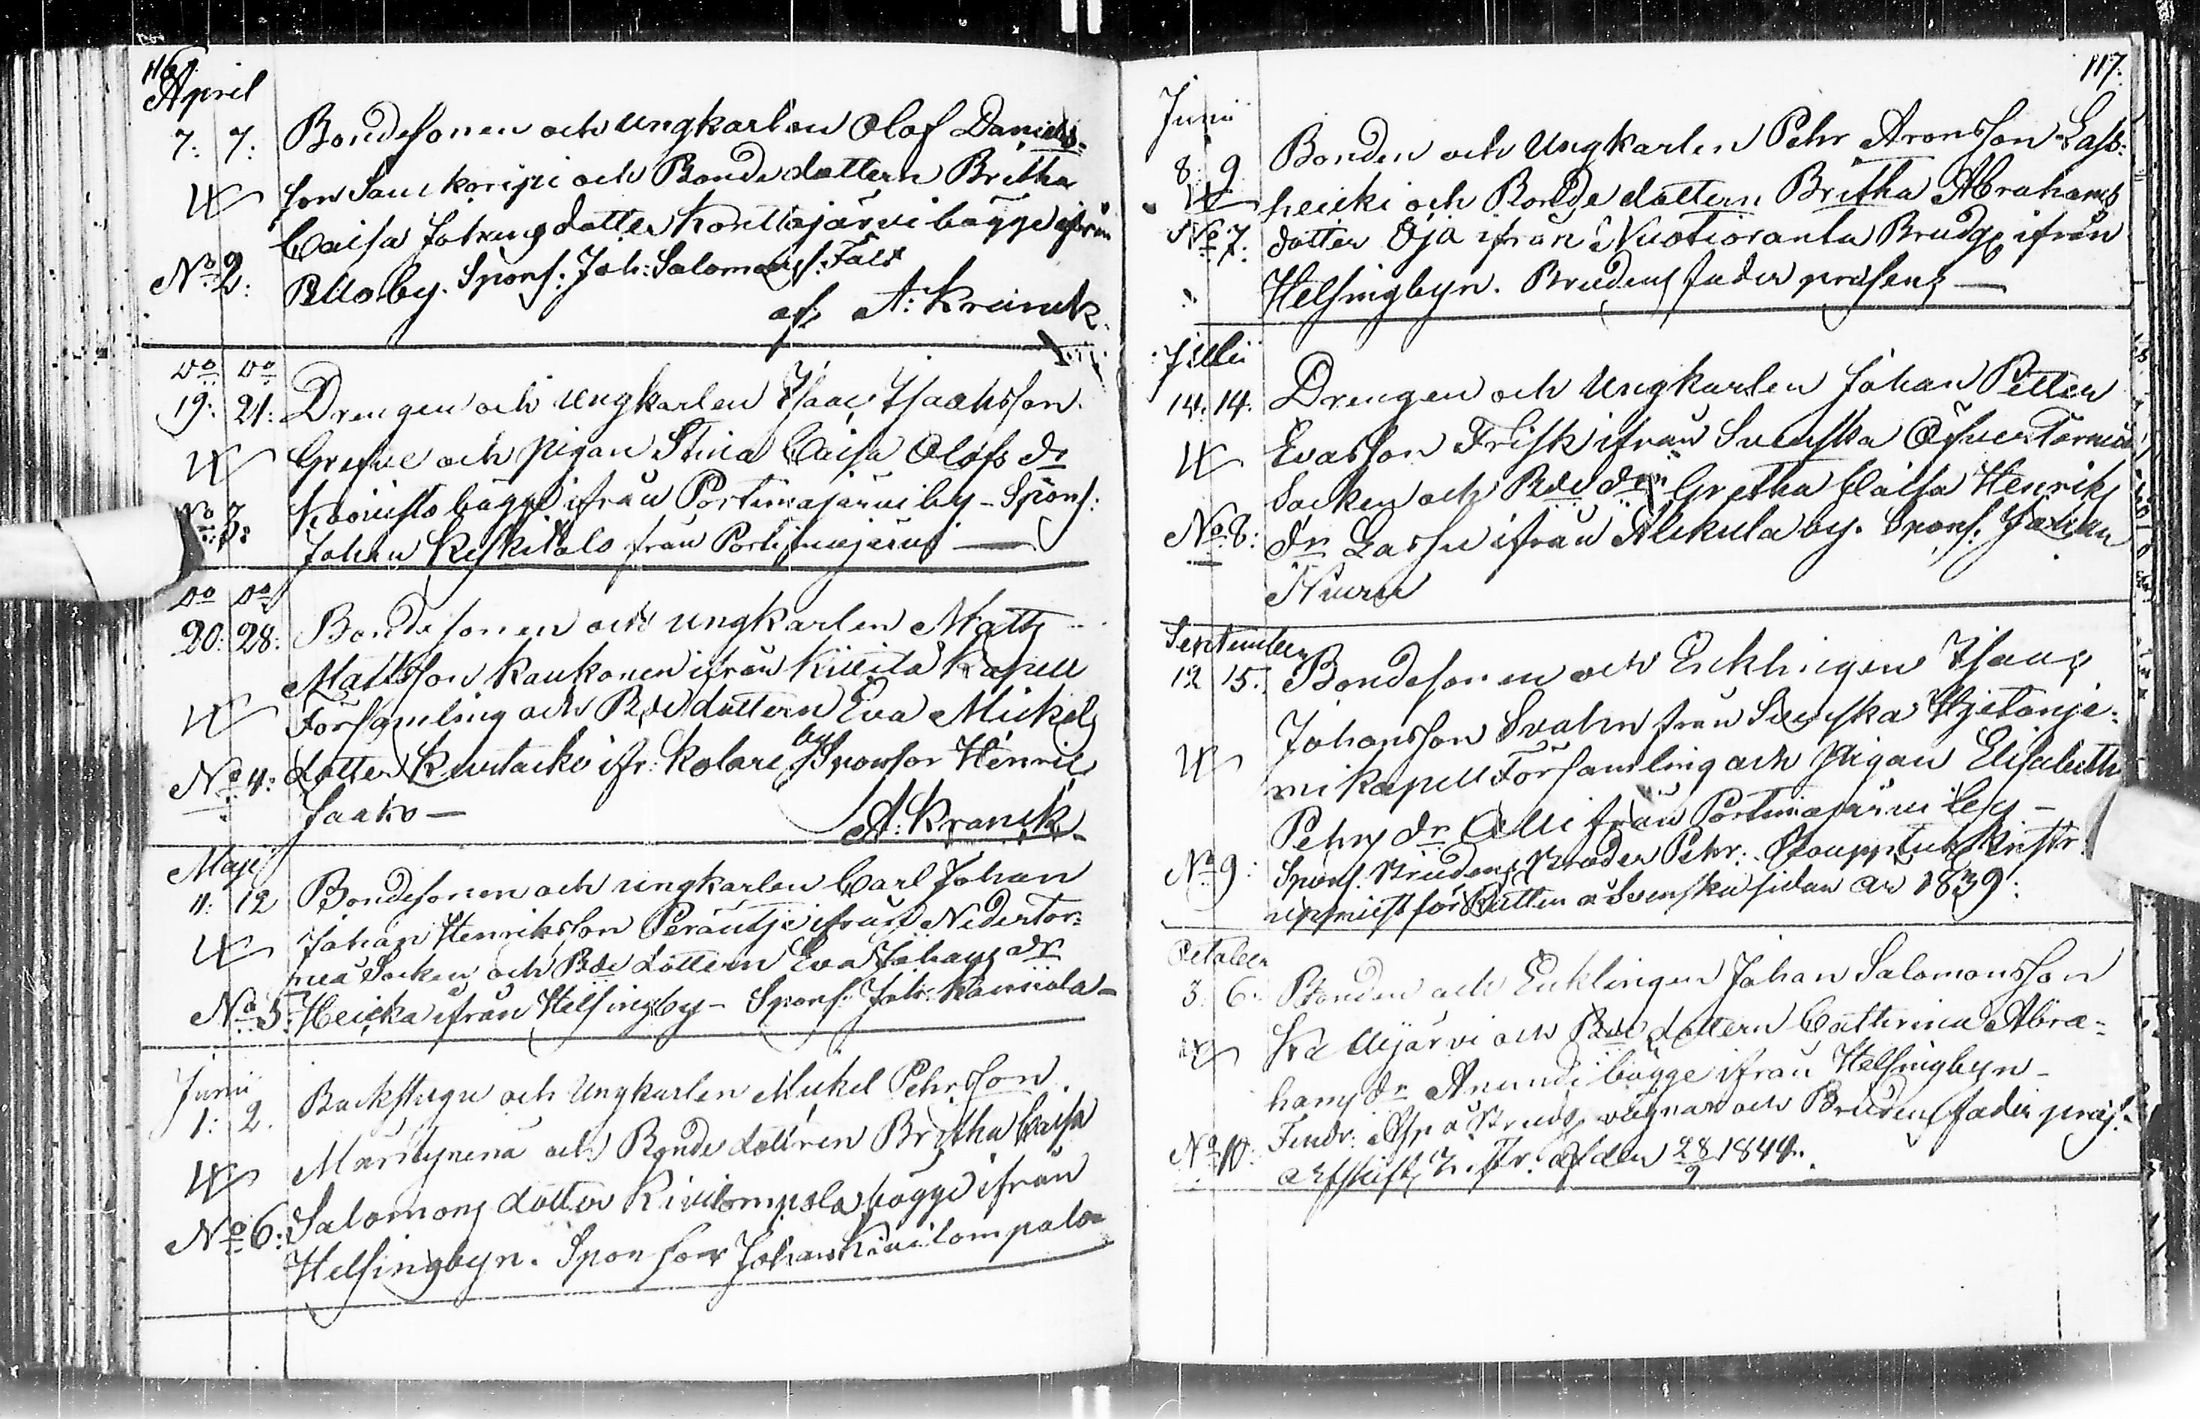 116.
April
7. 7. Bondesonen och Ungkarlen Olof Daniels-
son Saukoripi och Bondedottern Britha
Caisa Johans dotter Konttajärvi bägge ifrån
No 2: Pello by. Spons: Joh: Salomons: Fält
af: A: Kranck.
Do Do
19: 21: Drengen och Ungkarlen Isaac Isacksson
Grefve och pigan Stina Caisa Olofs dr
Koivisto bägge ifrån Portimojärvi by - Spons:
No 3: Johan Keskitalo från Portimojärvi —
Do Do
20: 28: Bondesonen och Ungkarlen Matts
Mattsson Kaukonen ifrån Kittilä Kapell
Församling och Bde dottern Eva Mickels
No 4: dotter Kurtacko ifr: Kolare by Sponsor Henric
Jaako —
A: Kranck
Maji
11: 12 Bondesonen och ungkarlen Carl Johan
Johan Henriksson Peräntje ifrån Nedertor:
neå Socken och Bde dottern Eva Johans dr
No 5: Heicka ifrån Helsingby - Spons: Joh: Kanniala -
Junii
1: 2. Backstugu och Ungkarlen Mickel Pehrsson
och Bonde dottren Britha Caisa
Salomons dotter Kivilompolo bägge ifrån
No 6: Helsingbyn. Sponsor Johan Kivilompolo
117.
Junii
8. 9 Bonden och Ungkarlen Pehr Aronsson Lass:
heicki och Bonde dottern Britha Abrahams
No 7. dotter Oja ifrån Vuotioranta Brudg: ifrån
Helsingbyn. Brudens fader præsens —
Julii
14. 14. Drengen och Ungkarlen Johan Petter
Evasson Frisk ifrån Svenska Öfver Torneå
Socken och Bde drn Gretha Caisa Henriks
No 8: dr Lassu ifrån Alkula by. Spons. Johan
September
12 15. Bondesonen och Enklingen Isaac
Johansson Svahn från Svenska Hjetanje:
mi kapell Församling och Pigan Elisabeth
Pehrs dr Alli från Portimojärvi by -
No 9: Spons. Brudens Broder Pehr:
för Rätten å Svenska sidan år 1839:
October
3. 6. Bonden och Enklingen Johan Salomonsson
Kallijärvi och Bde dottern Cathrina Abra-
hams dr Anundi bägge ifrån Helsingbyn -
No 10: å Brudg: vägnar och Brudens fader præs:
Afskift: af den 28/9 1844.